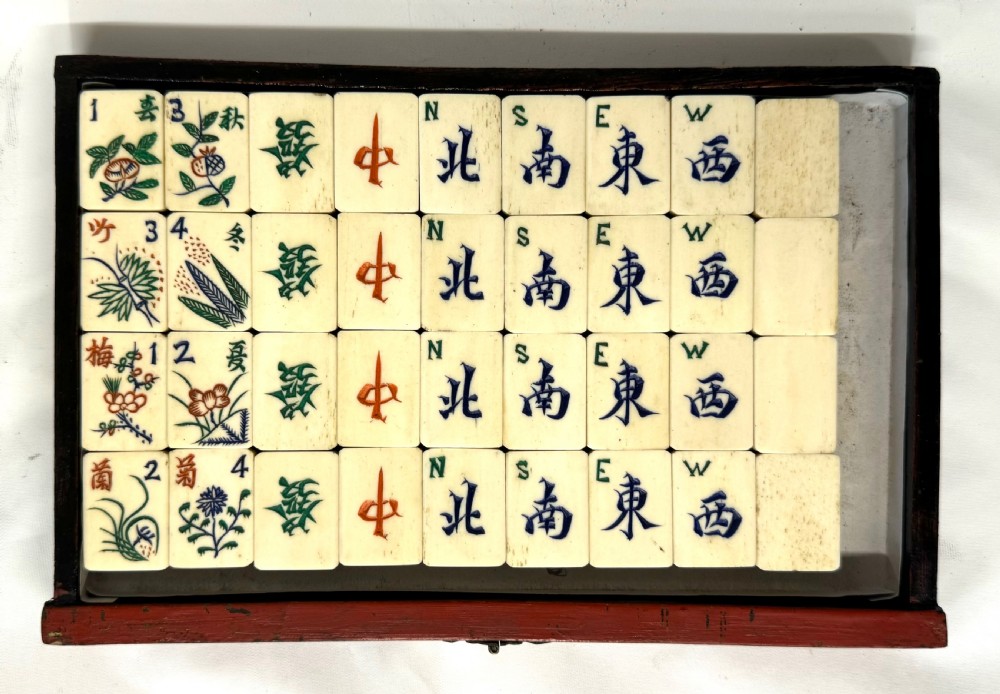 1 春 3 秋 發 中 N 北 S 南 E 東 W 西
竹 3 4 冬 發 中 N 北 S 南 E 東 W 西
梅 1 2 夏 發 中 N 北 S 南 E 東 W 西
蘭 2 菊 4 發 中 N 北 S 南 E 東 W 西